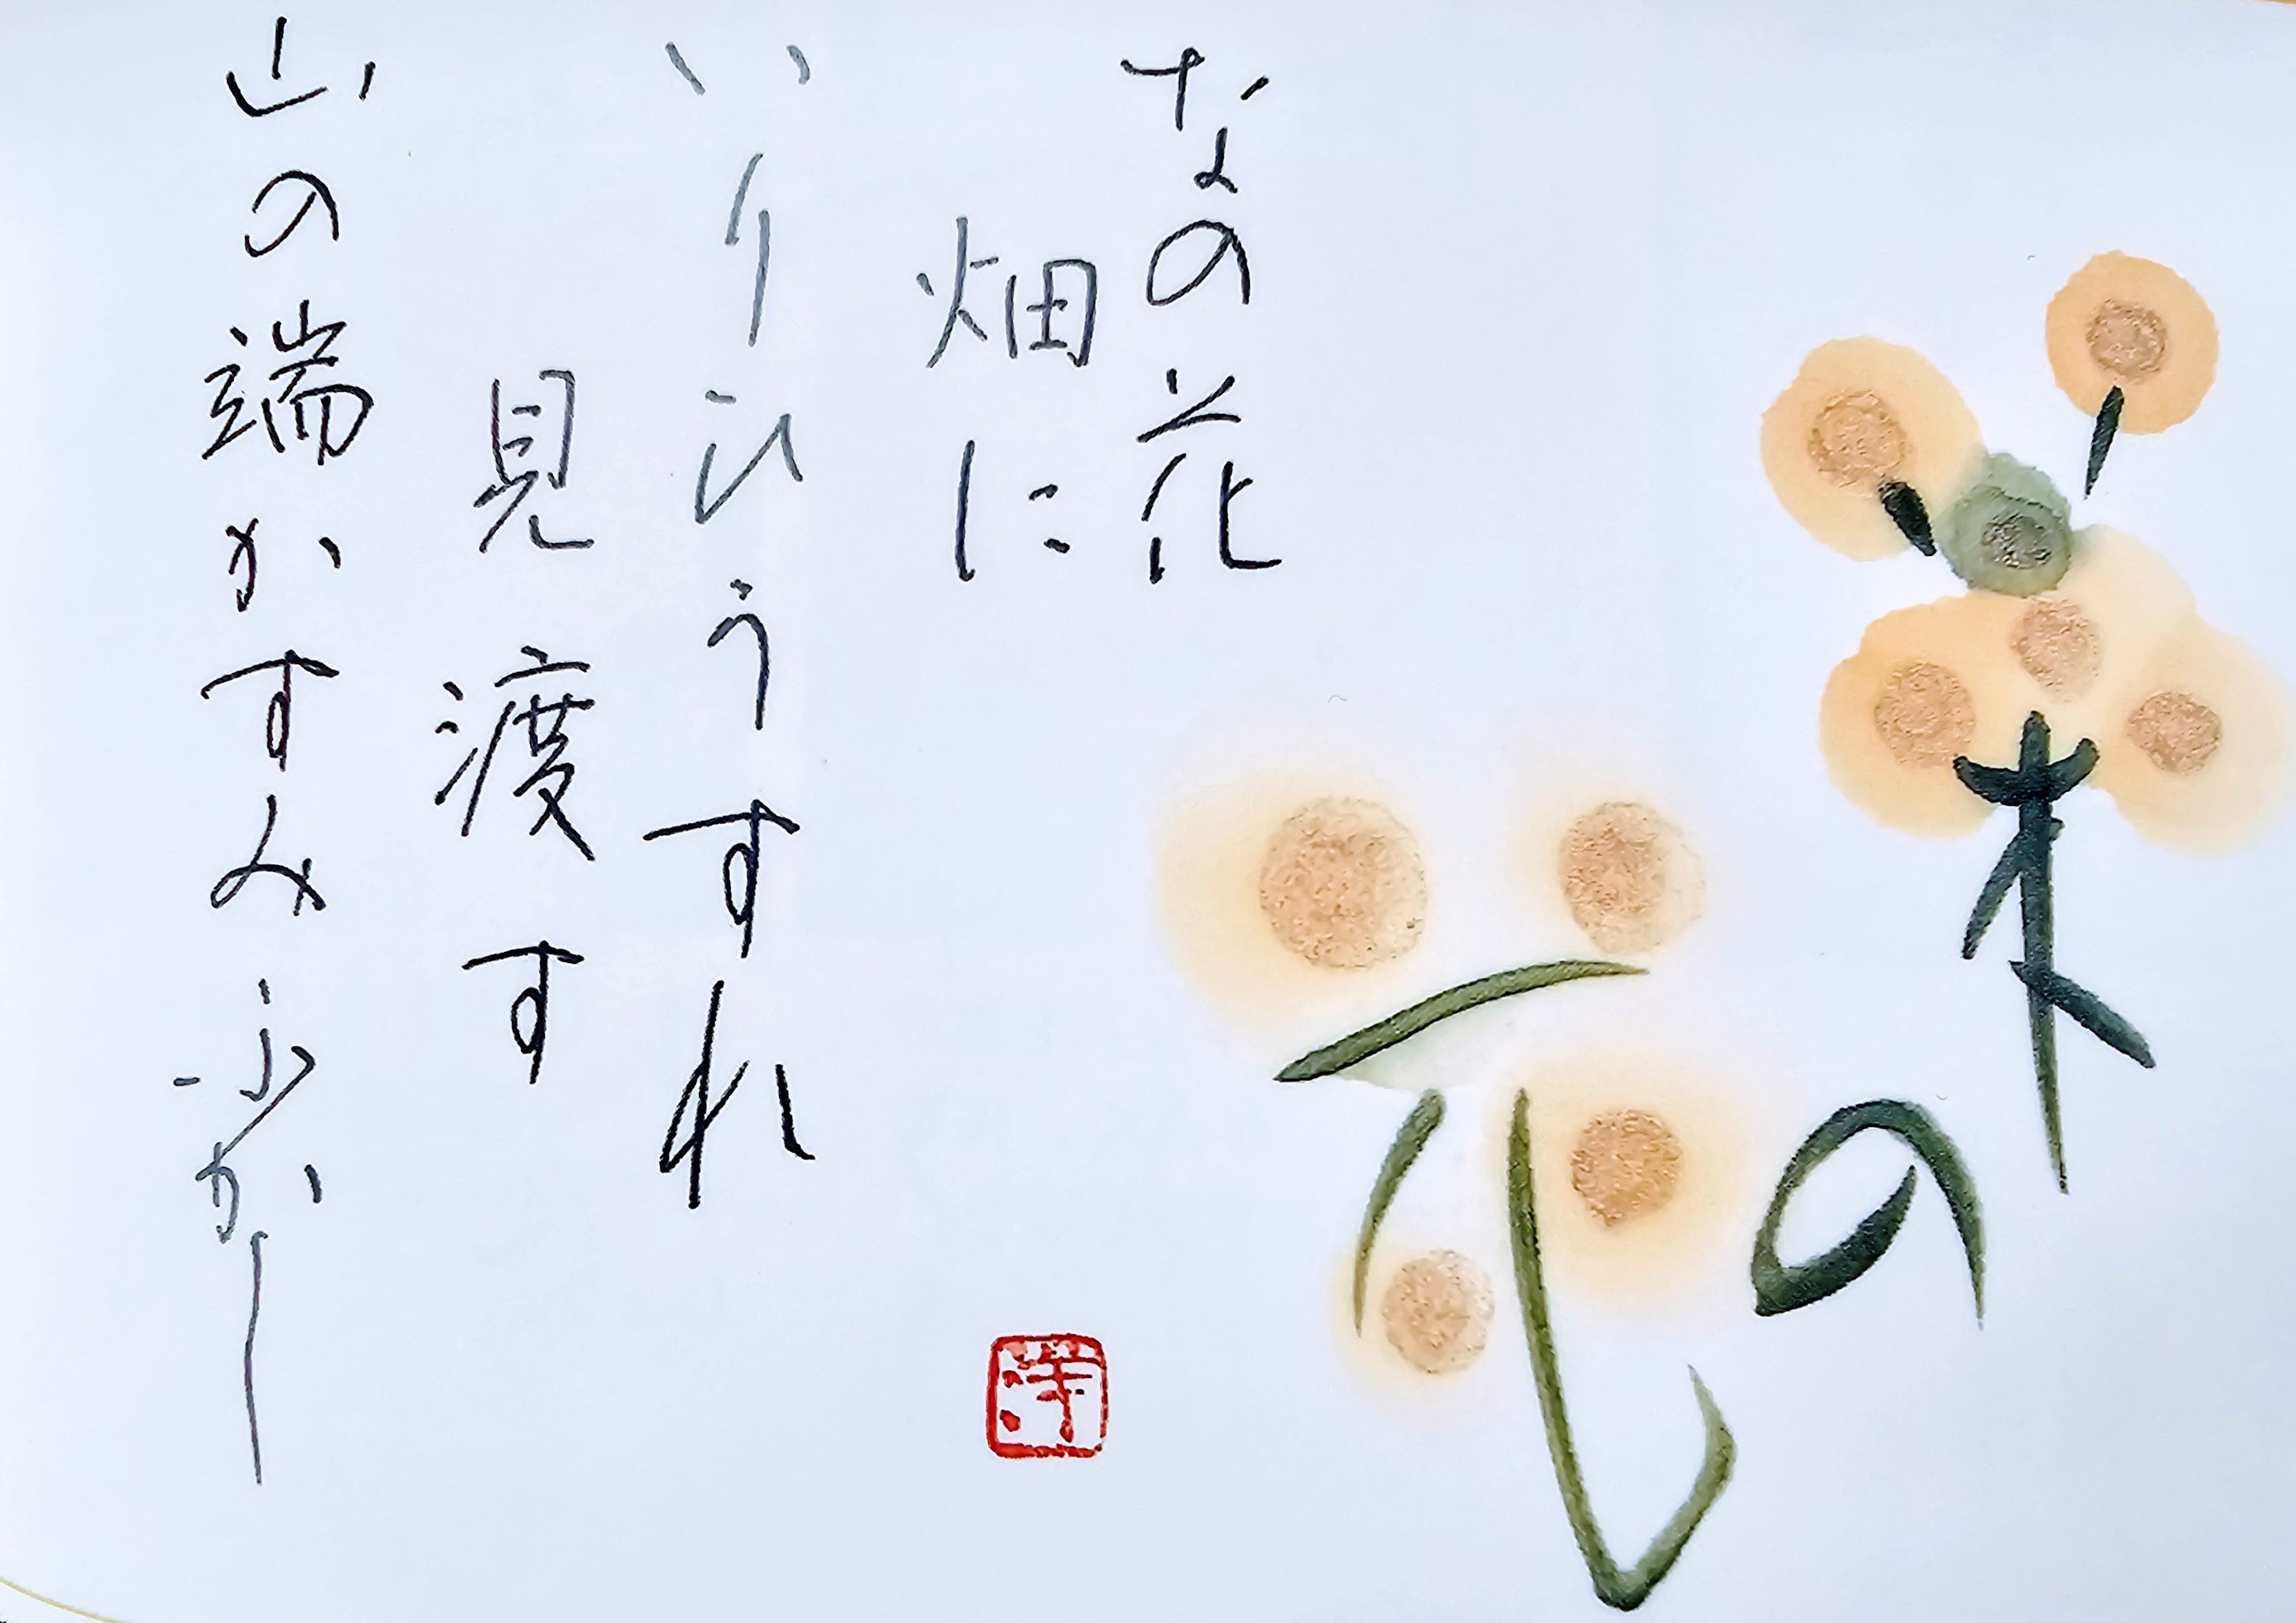 菜の花
なの花
畑に
いりひうすれ
見渡す
山の端かすみふかし